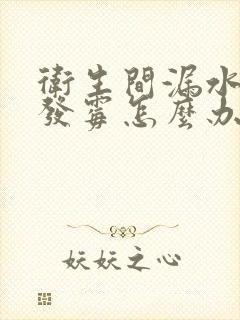 衛生間漏水
發霉怎麼办
妖妖之心